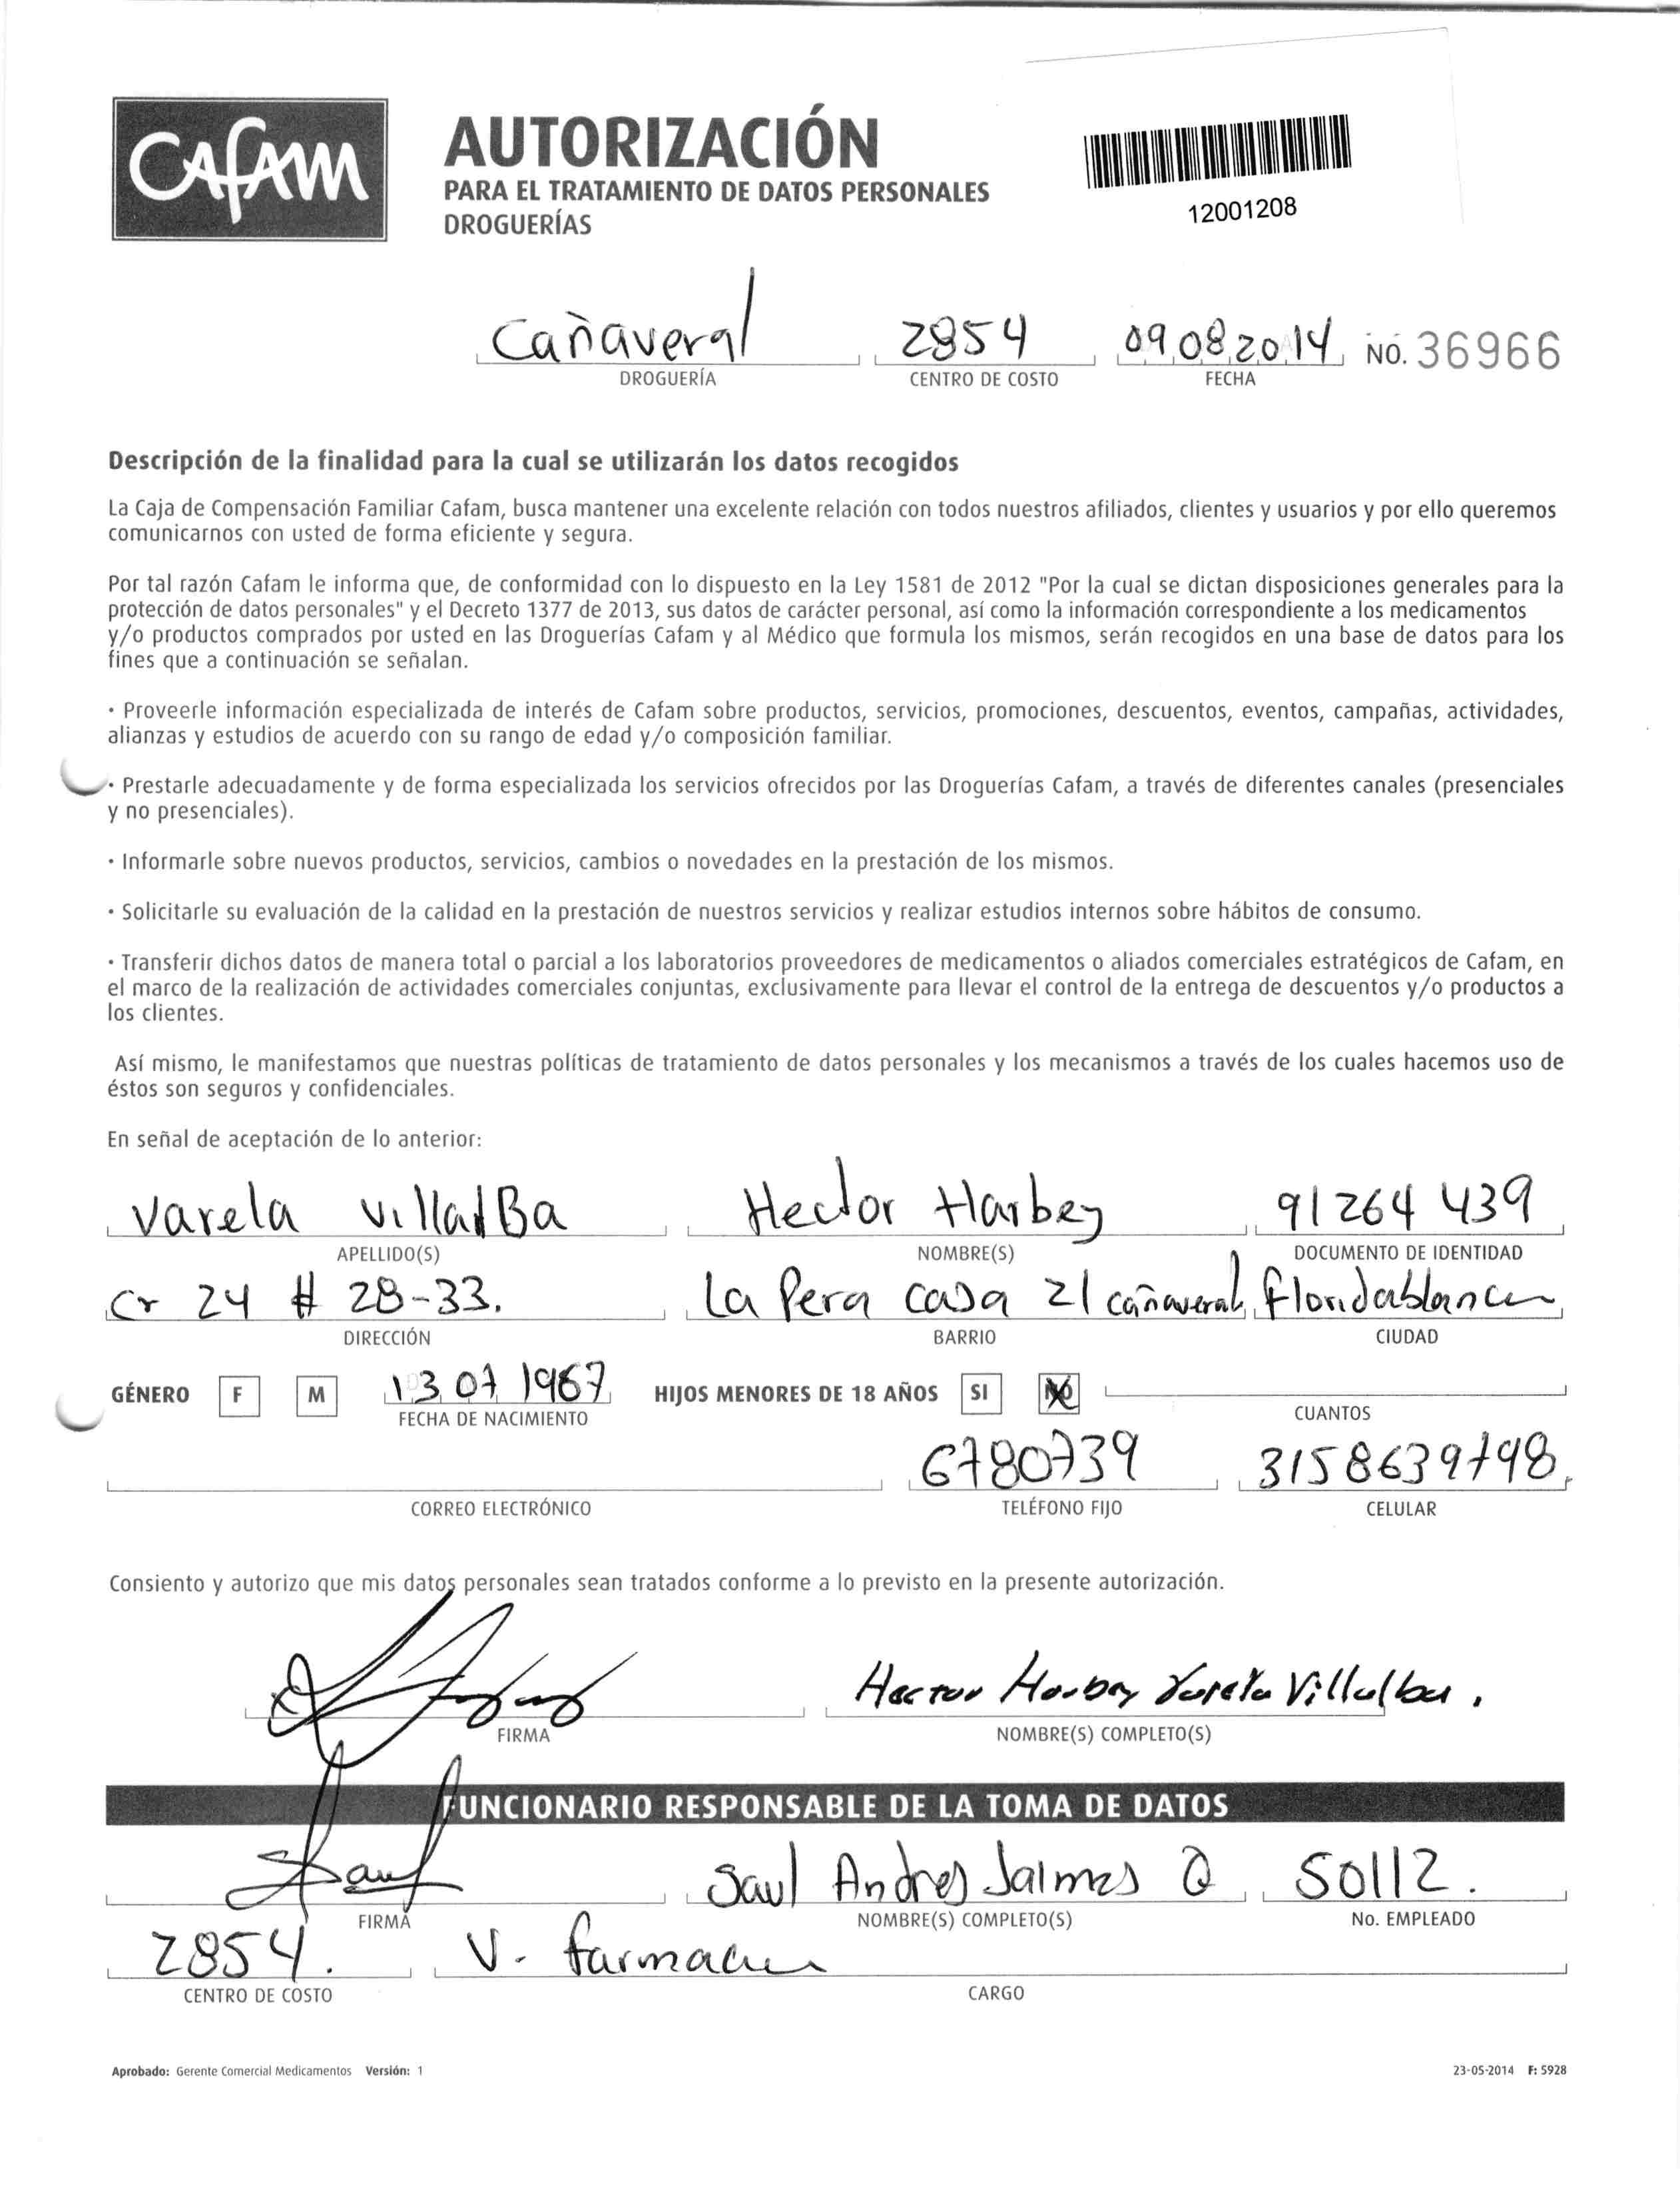 CAFAM
AUTORIZACIÓN
PARA EL TRATAMIENTO DE DATOS PERSONALES
DROGUERÍAS
12001208
Cañaveral 2854 09 08 2014 NO. 36966
DROGUERÍA CENTRO DE COSTO FECHA
Descripción de la finalidad para la cual se utilizarán los datos recogidos
La Caja de Compensación Familiar Cafam, busca mantener una excelente relación con todos nuestros afiliados, clientes y usuarios y por ello queremos
comunicarnos con usted de forma eficiente y segura.
Por tal razón Cafam le informa que, de conformidad con lo dispuesto en la Ley 1581 de 2012 "Por la cual se dictan disposiciones generales para la
protección de datos personales" y el Decreto 1377 de 2013, sus datos de carácter personal, así como la información correspondiente a los medicamentos
y/o productos comprados por usted en las Droguerías Cafam y al Médico que formula los mismos, serán recogidos en una base de datos para los
fines que a continuación se señalan.
· Proveerle información especializada de interés de Cafam sobre productos, servicios, promociones, descuentos, eventos, campañas, actividades,
alianzas y estudios de acuerdo con su rango de edad y/o composición familiar.
· Prestarle adecuadamente y de forma especializada los servicios ofrecidos por las Droguerías Cafam, a través de diferentes canales (presenciales
y no presenciales).
· Informarle sobre nuevos productos, servicios, cambios o novedades en la prestación de los mismos.
· Solicitarle su evaluación de la calidad en la prestación de nuestros servicios y realizar estudios internos sobre hábitos de consumo.
· Transferir dichos datos de manera total o parcial a los laboratorios proveedores de medicamentos o aliados comerciales estratégicos de Cafam, en
el marco de la realización de actividades comerciales conjuntas, exclusivamente para llevar el control de la entrega de descuentos y/o productos a
los clientes.
Así mismo, le manifestamos que nuestras políticas de tratamiento de datos personales y los mecanismos a través de los cuales hacemos uso de
éstos son seguros y confidenciales.
En señal de aceptación de lo anterior:
Varela VillalBa Hector Harbey 91264439
APELLIDO(S) NOMBRE(S) DOCUMENTO DE IDENTIDAD
Cr 24 # 28-33. La Pera casa 21 cañaveral Floridablanca
DIRECCIÓN BARRIO CIUDAD
GÉNERO F M 13 07 1967 HIJOS MENORES DE 18 AÑOS SI NO
FECHA DE NACIMIENTO CUANTOS
6780739 3158639798.
CORREO ELECTRÓNICO TELÉFONO FIJO CELULAR
Consiento y autorizo que mis datos personales sean tratados conforme a lo previsto en la presente autorización.
Hector Harbey Varela Villalba.
FIRMA NOMBRE(S) COMPLETO(S)
FUNCIONARIO RESPONSABLE DE LA TOMA DE DATOS
Saul Andres Jaimes Q 50112.
FIRMA NOMBRE(S) COMPLETO(S) No. EMPLEADO
2854. V. farmacia
CENTRO DE COSTO CARGO
Aprobado: Gerente Comercial Medicamentos Versión: 1 23-05-2014 F: 5928